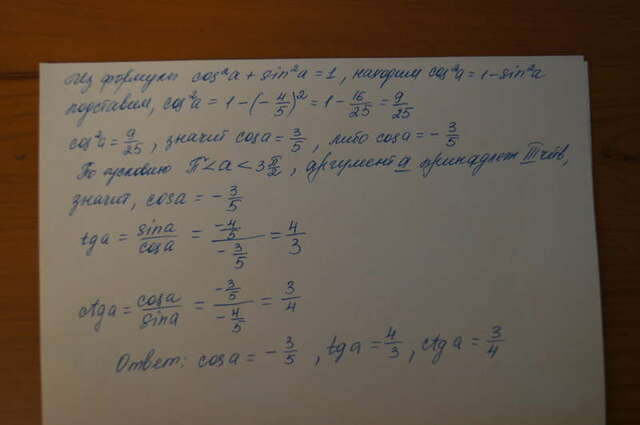 Из формулы cos²a + sin²a = 1, находим cos²a = 1 - sin²a
подставим, cos²a = 1 - (-4/5)² = 1 - 16/25 = 9/25
cos²a = 9/25, значит cos a = 3/5, либо cos a = -3/5
По условию π < a < 3π/2, аргумент a принадлеж III четв,
значит, cos a = -3/5
tg a = sin a / cos a = (-4/5) / (-3/5) = 4/3
ctg a = cos a / sin a = (-3/5) / (-4/5) = 3/4
Ответ: cos a = -3/5, tg a = 4/3, ctg a = 3/4